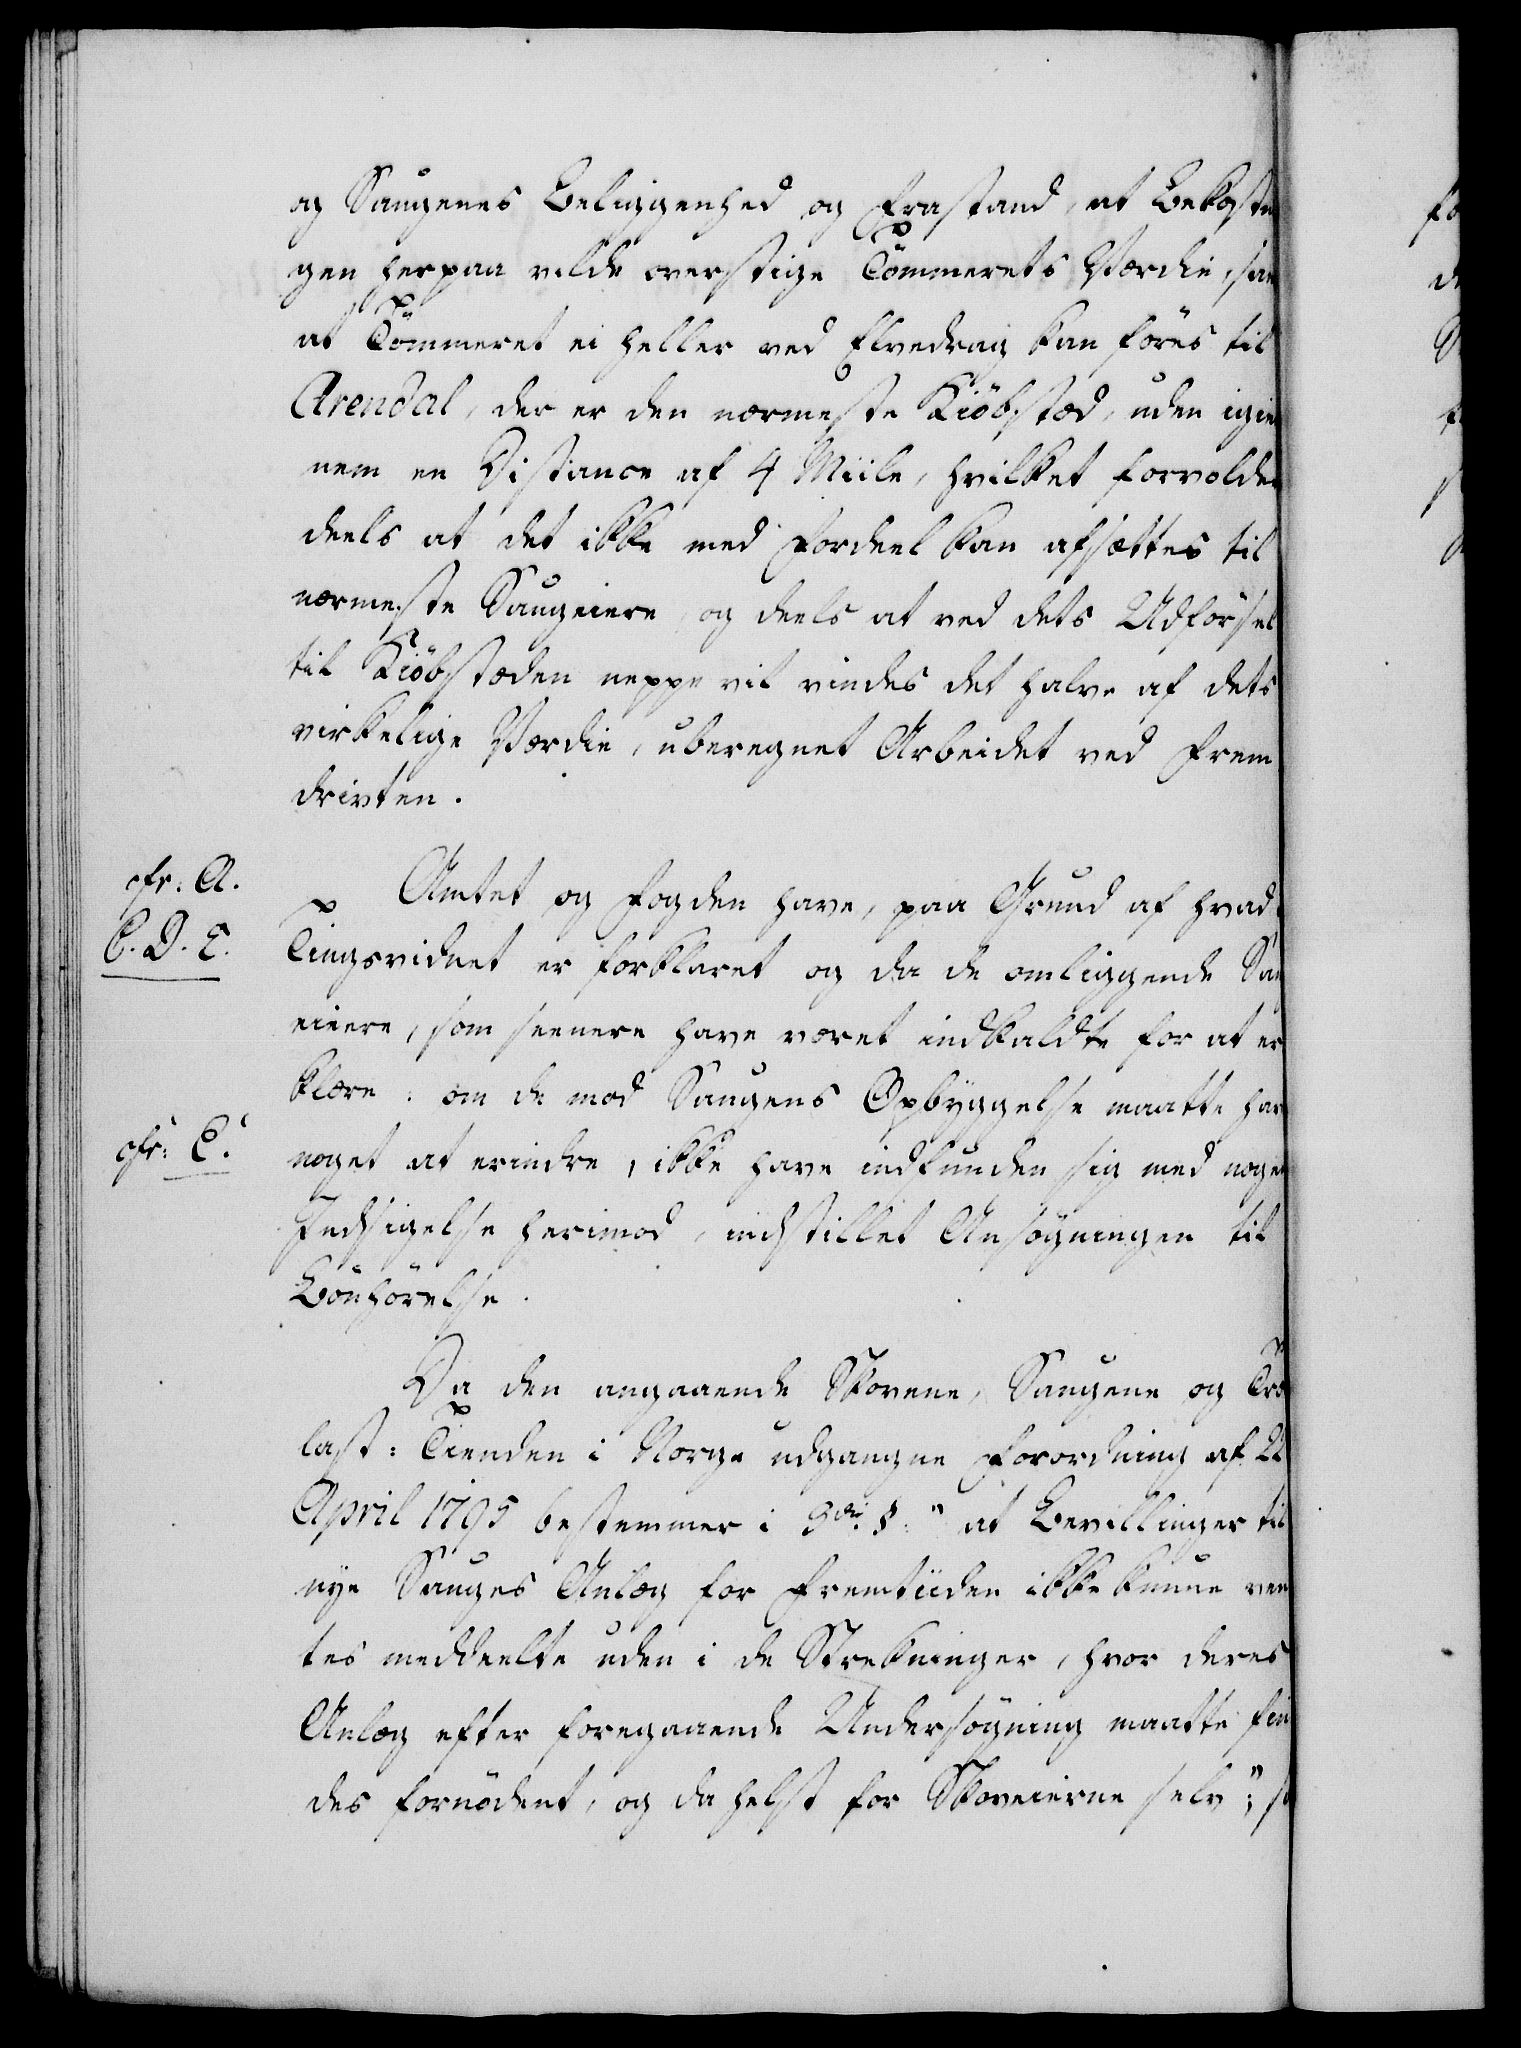 og Saugenes Beliggenhed og Frastand, at Bekostn
gen herpaa vilde overstige Tömmerets Værdie, saa
at Tömmeret ei heller ved Elvedrag kan föres til
Arendal, der er den nærmeste Kiöbstæd, uden igien
nem en Distance af 4 Miile, hvilket forvolder
deels at det ikke med Fordeel kan afsættes til
nærmeste Saugeiere, og deels at ved dets Udförsel
til Kiöbstæden neppe vil vindes det halve af dets
virkelige Værdie, uberegnet Arbeidet ved Frem
drivten.
cfr: A.
C. D. E.
Amtet og Fogden have, paa Grund af hvad
Tingsvidnet er forklaret og da de omliggende Sau
eiere, som seenere have været indkaldte for at er
klære: om de mod Saugens Opbyggelse maatte have
cfr: E.
noget at erindre, ikke have indfunden sig med nogen
Indsigelse herimod, indstillet Ansögningen til
Bönhörelse.
Da den angaaende Skovene, Saugene og Træ
last: Tienden i Norge udgangne Forordning af 22
April 1795 bestemmer i 9de §: " at Bevillinger til
nye Sauges Anlæg for Fremtiiden ikke kunne ven
tes meddeelte uden i de Strekninger, hvor deres
Anlæg efter foregaaende Undersögning maatte fin
des fornödent, og da helst for Skoveierne selv";